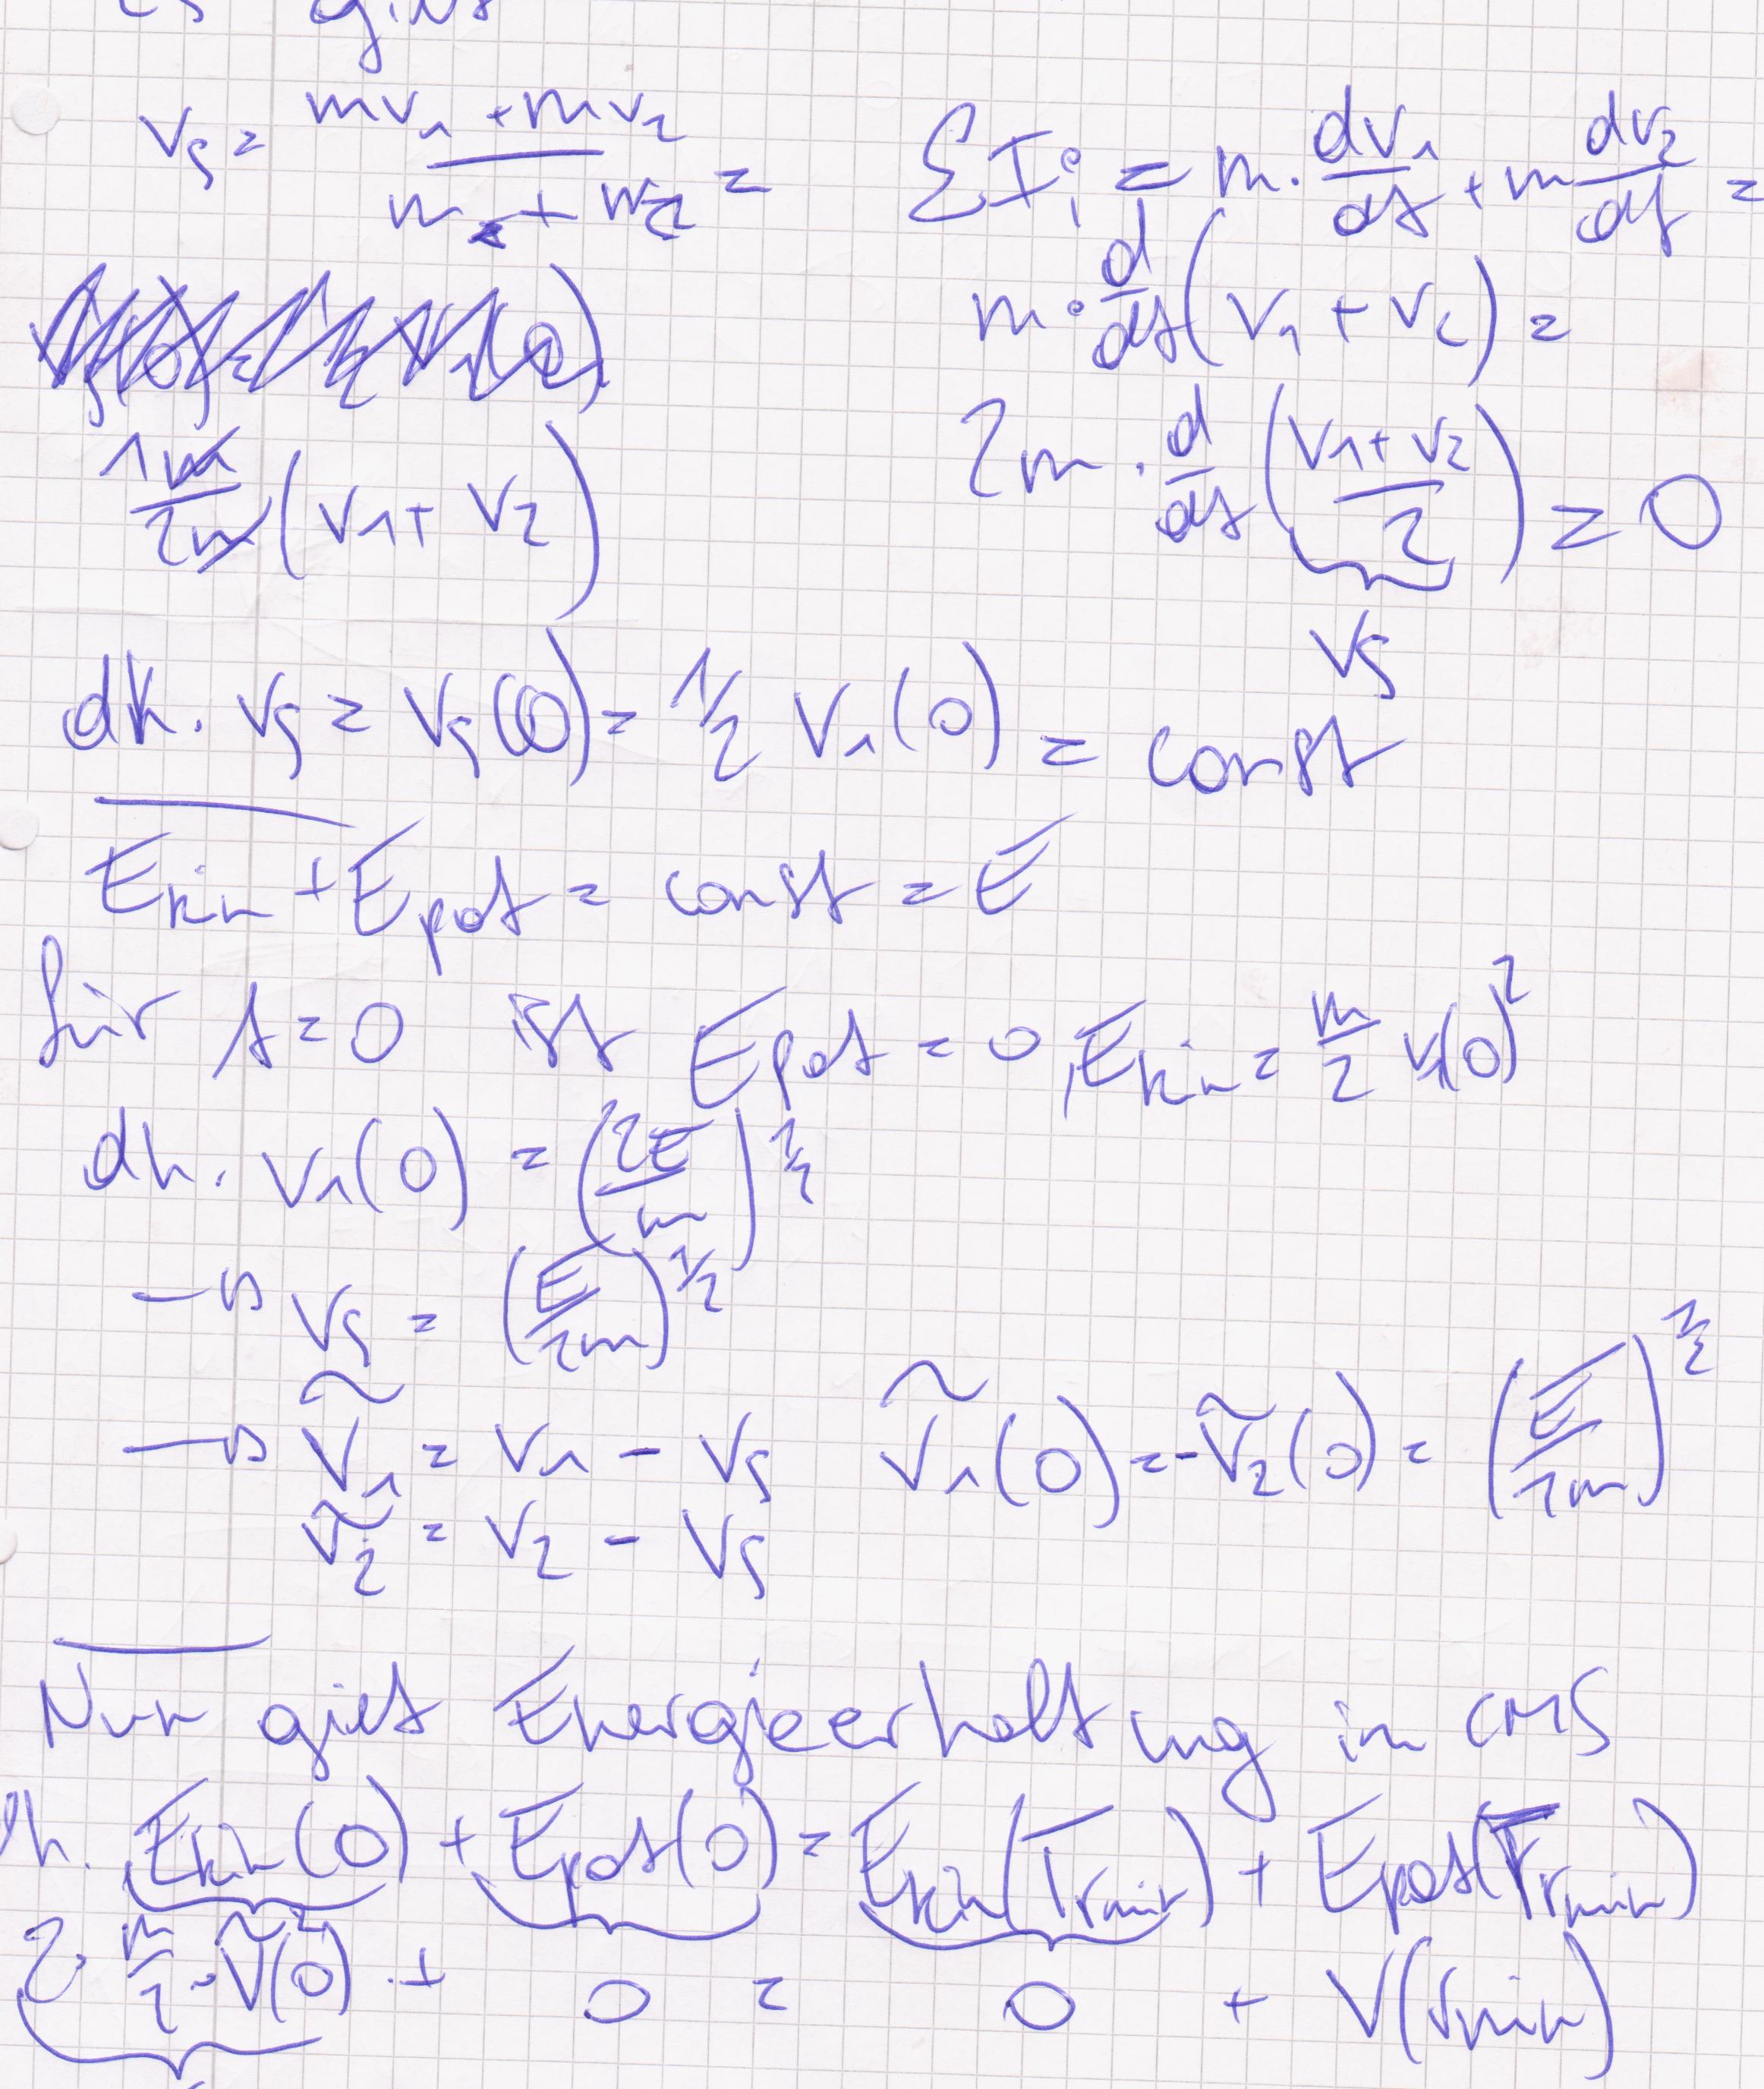 v_s = (m v_1 + m v_2) / (m_1 + m_2) =
ΣI_i = m · dv_1/dt + m dv_2/dt =
m · d/dt (v_1 + v_2) =
1m/2m (v_1 + v_2)
2m · d/dt ((v_1 + v_2)/2) = 0
v_s
dh. v_s = v_s(0) = 1/2 v_1(0) = const
E_kin + E_pot = const = E
für t = 0 ist E_pot = 0, E_kin = m/2 v_1(0)^2
dh. v_1(0) = (2E/m)^1/2
→ v_s = (E/2m)^1/2
→ ṽ_1 = v_1 - v_s ṽ_1(0) = -ṽ_2(0) = (E/2m)^1/2
ṽ_2 = v_2 - v_s
Nun gilt Energieerhaltung in CMS
dh. E_kin(0) + E_pot(0) = E_kin(T_rmin) + E_pot(T_rmin)
2 · m/2 · ṽ(0)^2 + 0 = 0 + V(r_min)